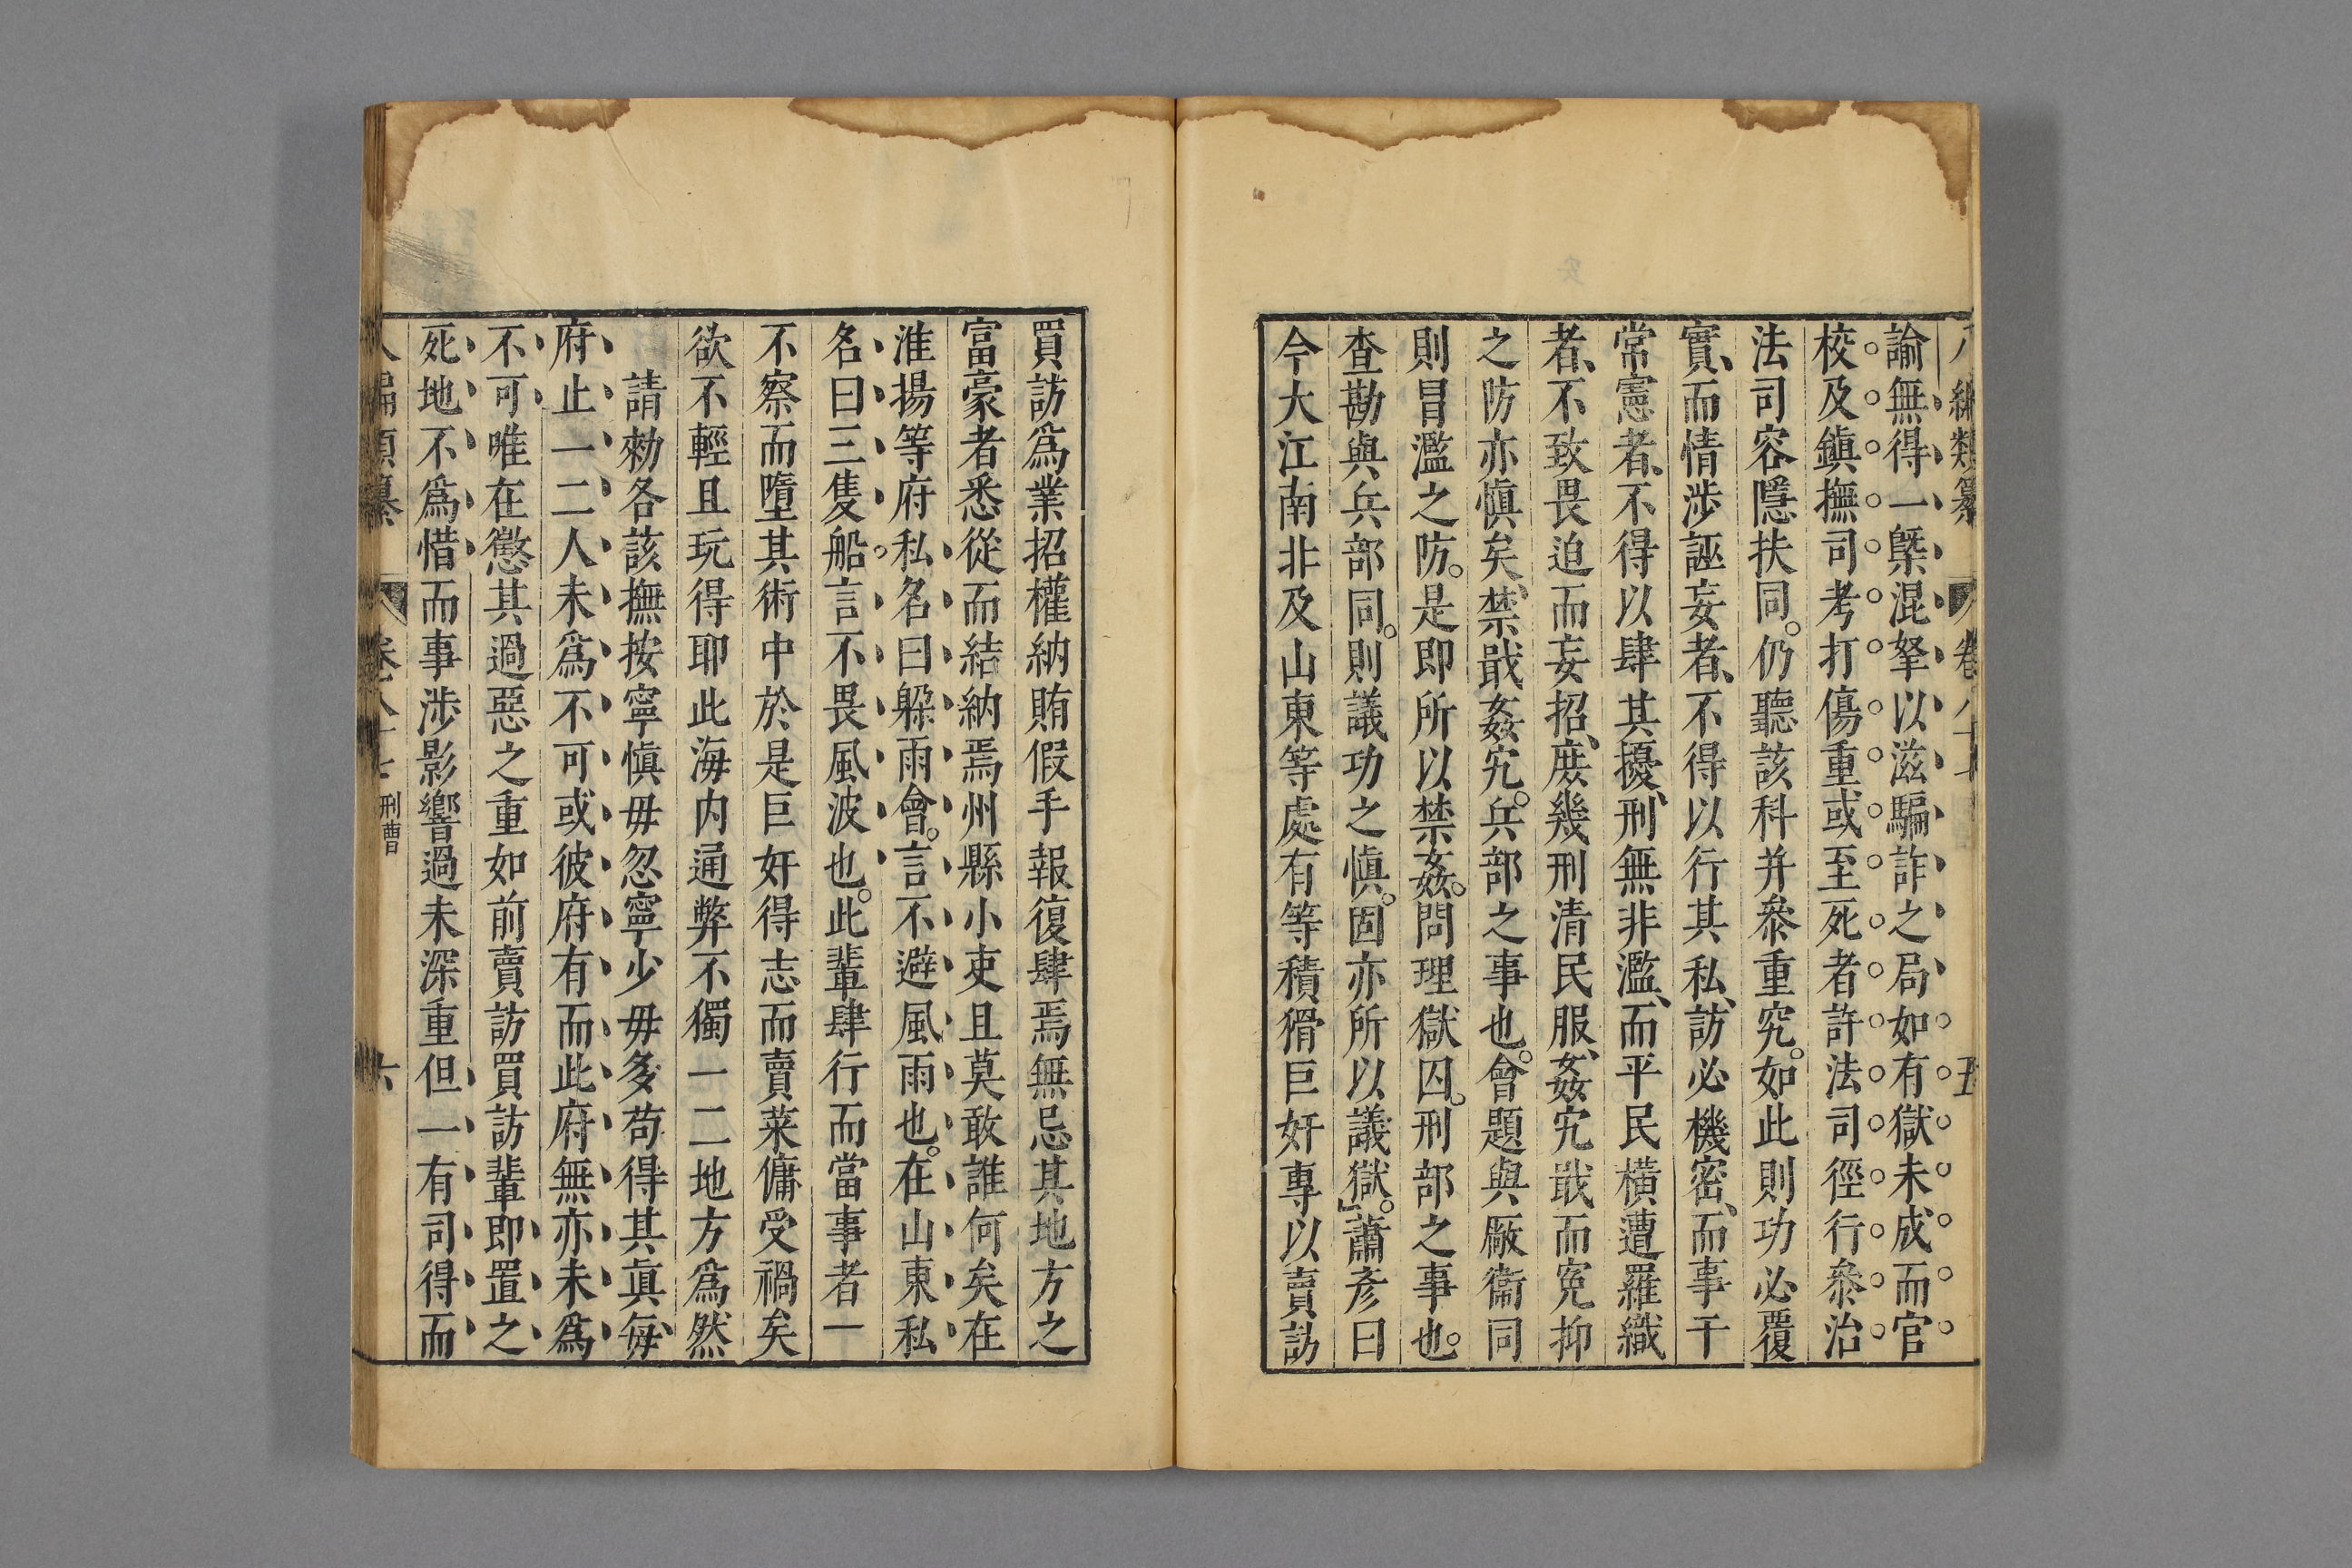 諭無得一槩混拏以滋騙詐之局如有獄未成而官
校及鎮撫司考打傷重或至死者許法司徑行叅治
法司容隱扶同。仍聽該科并叅重究。如此則功必覆
實、而情涉誣妄者、不得以行其私、訪必機密、而事干
常憲者、不得以肆其擾、刑無非濫、而平民橫遭羅織
者、不致畏迫而妄招、庶幾刑清民服、姦宄戢而寃抑
之防亦慎矣、禁戢姦宄。兵部之事也。會題與厰衞同
則冒濫之防。是即所以禁姦。問理獄囚。刑部之事也。
查勘與兵部同。則議功之慎。固亦所以議獄。」蕭彥曰
今大江南非及山東等處有等積猾巨奸專以賣訪
買訪爲業招權納賄假手報復肆焉無忌其地方之
富豪者悉從而結納焉州縣小吏且莫敢誰何矣在
淮揚等府私名曰躱雨會。言不避風雨也。在山東私
名曰三隻船。言不畏風波也。此輩肆行而當事者一
不察而墮其術中於是巨奸得志而賣菜傭受禍矣
欲不輕且玩得耶此海内通弊不獨一二地方爲然
請勑各該撫按寧慎毋忽寧少毋多苟得其眞每
府止一二人未爲不可或彼府有而此府無亦未爲
不可唯在懲其過惡之重如前賣訪買訪輩即置之
死地不爲惜而事涉影響過未深重但一有司得而
刑曹
六